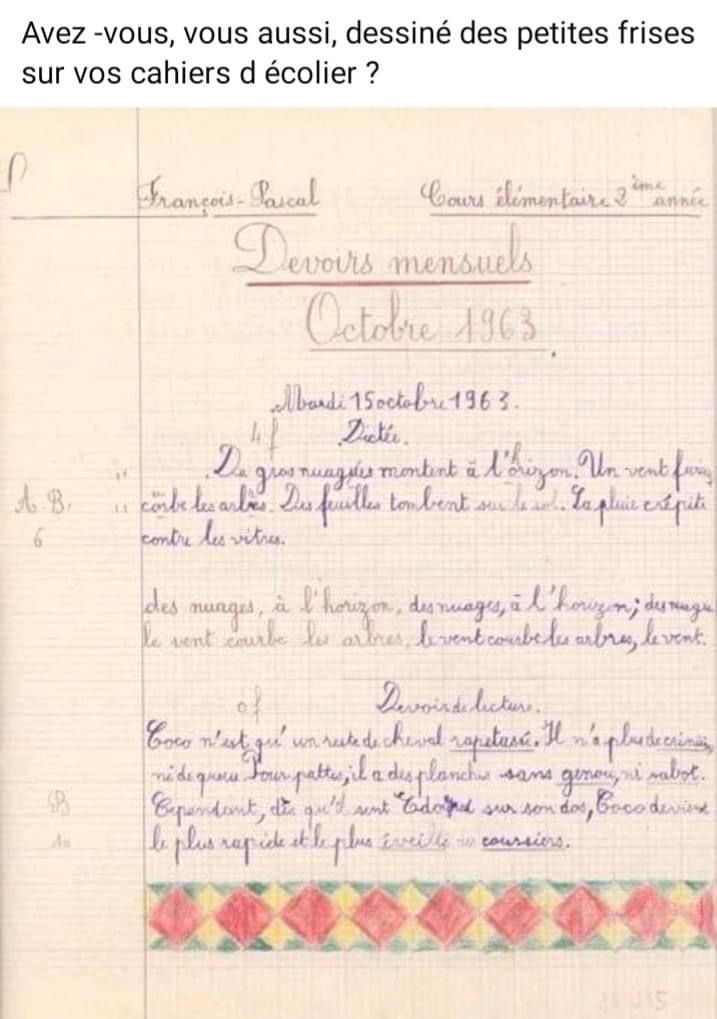 Avez -vous, vous aussi, dessiné des petites frises
sur vos cahiers d écolier ?
François-Pascal Cours élémentaire 2ème année
Devoirs mensuels
Octobre 1963
Mardi 15 octobre 1963.
4f Dictée.
De gros nuages montent à l'orizon. Un vent
A.B. courbe les arbres. Des feuilles tombent sur le sol. La pluie crépite
6 contre les vitres.
des nuages, à l'horizon, des nuages, à l'horizon; des nuages
le vent courbe les arbres, le vent courbe les arbres, le vent.
0f Devoir de lecture.
Coco n'est qu'un reste de cheval rapetassé. Il n'a plus de
ni de queue Pour pattes, il a des planches sans genou, ni sabot.
B Cependant, dès qu'il sent sur son dos, Coco devient
le plus rapide et le plus éveillé des coursiers.